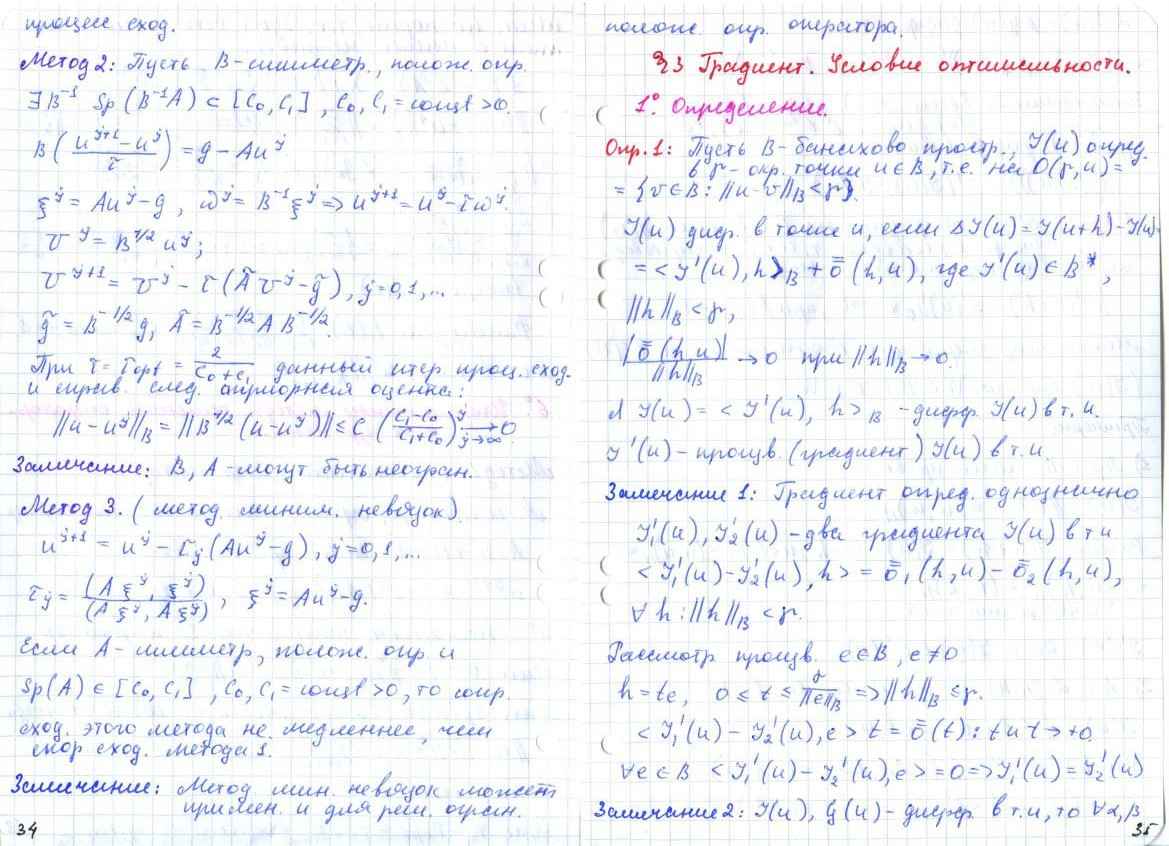 процесс сход.
Метод 2: Пусть B - симметр., полож. опр.
∃ B⁻¹ Sp(B⁻¹A) ⊂ [C₀, C₁], C₀, C₁ = const > 0.
B((u^{j+1} - u^j)/τ) = g - Au^j
ξ^j = Au^j - g, ω^j = B⁻¹ξ^j ⇒ u^{j+1} = u^j - τω^j.
v^j = B^{1/2} u^j;
v^{j+1} = v^j - τ(Ãv^j - g̃), j = 0,1,...
g̃ = B^{-1/2} g, Ã = B^{-1/2} A B^{-1/2}.
При τ = τopt = 2/(C₀+C₁) данный итер. проц. сход.
и справ. след. априорная оценка:
||u - u^j||_B = ||B^{1/2}(u - u^j)|| ≤ C ((C₁-C₀)/(C₁+C₀))^j → 0 j→∞
Замечание: B, A - могут быть неогран.
Метод 3. (метод миним. невязок).
u^{j+1} = u^j - τ_j(Au^j - g), j = 0,1,...
τ_j = (Aξ^j, ξ^j)/(Aξ^j, Aξ^j), ξ^j = Au^j - g.
Если A - симметр, полож. опр. и
Sp(A) ∈ [C₀, C₁], C₀, C₁ = const > 0, то скор.
сход. этого метода не медленнее, чем
скор сход. метода 1.
Замечание: Метод мин. невязок может
примен. и для реш. огран.
34
полож. опр. оператора.
§3 Градиент. Условие оптимальности.
1°. Определение.
Опр. 1: Пусть B - банахово простр., J(u) опред.
в γ - окр. точки u ∈ B, т.е. на O(γ, u) =
= {v ∈ B : ||u - v||_B < γ}.
J(u) диф. в точке u, если ΔJ(u) = J(u+h) - J(u) =
= <J'(u), h>_B + ō(h, u), где J'(u) ∈ B*,
||h||_B < γ,
|ō(h, u)|/||h||_B → 0 при ||h||_B → 0.
d J(u) = <J'(u), h>_B - дифф. J(u) в т. u.
J'(u) - произв. (градиент) J(u) в т. u.
Замечание 1: Градиент опред. однозначно
J₁'(u), J₂'(u) - два градиента J(u) в т u
<J₁'(u) - J₂'(u), h> = ō₁(h, u) - ō₂(h, u),
∀ h : ||h||_B < γ.
Рассмотр произв. e ∈ B, e ≠ 0
h = te, 0 ≤ t ≤ γ/||e||_B ⇒ ||h||_B ≤ γ.
<J₁'(u) - J₂'(u), e> t = ō(t) : t и t → +0.
∀ e ∈ B <J₁'(u) - J₂'(u), e> = 0 ⇒ J₁'(u) = J₂'(u)
Замечание 2: J(u), G(u) - дифф. в т. u, то ∀ α, β
35